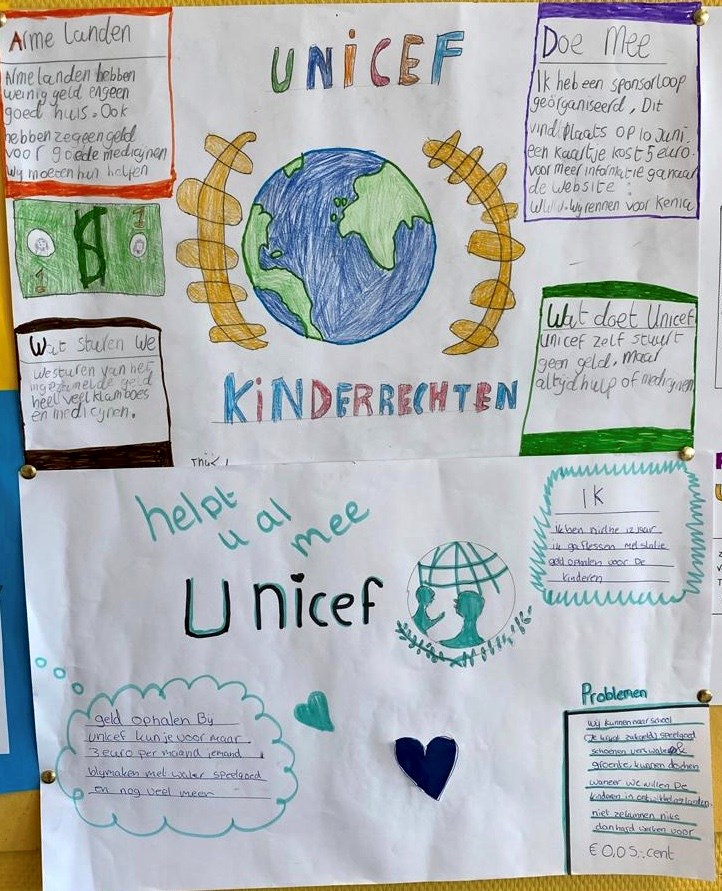 Arme landen
Armelanden hebben
weinig geld en geen
goed huis. Ook
hebben ze geen geld
voor goede medicijnen
wij moeten hun helpen
UNICEF
Doe Mee
Ik heb een sponsorloop
geörganiseerd, Dit
vind plaats op 10 Juni.
een kaartje kost 5 euro.
voor meer informatie ga naar
de website:
www.wijrennen voor kenia
1
$
1
Wat sturen we
we sturen van het
ingezamelde geld
heel veel klamboes
en medicijnen.
Wat doet Unicef
Unicef zelf stuurt
geen geld, maar
altijd hulp of medicijnen
KiNDERRECHTEN
helpt
u al
mee
Unicef
IK
Ik ben 12 jaar
ik ga flessen met statie
geld ophalen voor De
kinderen
geld ophalen By
unicef kun je voor maar
3 euro per maand iemand
blymaken met water speelgoed
en nog veel meer
Problemen
wij kunnen naar school
speelgoed
schoenen vers water &
groente kunnen douchen
waneer we willen De
kinderen in ontwikkelingslanden
niet ze kunnen niks
dan hard werken voor
€0,05.-cent